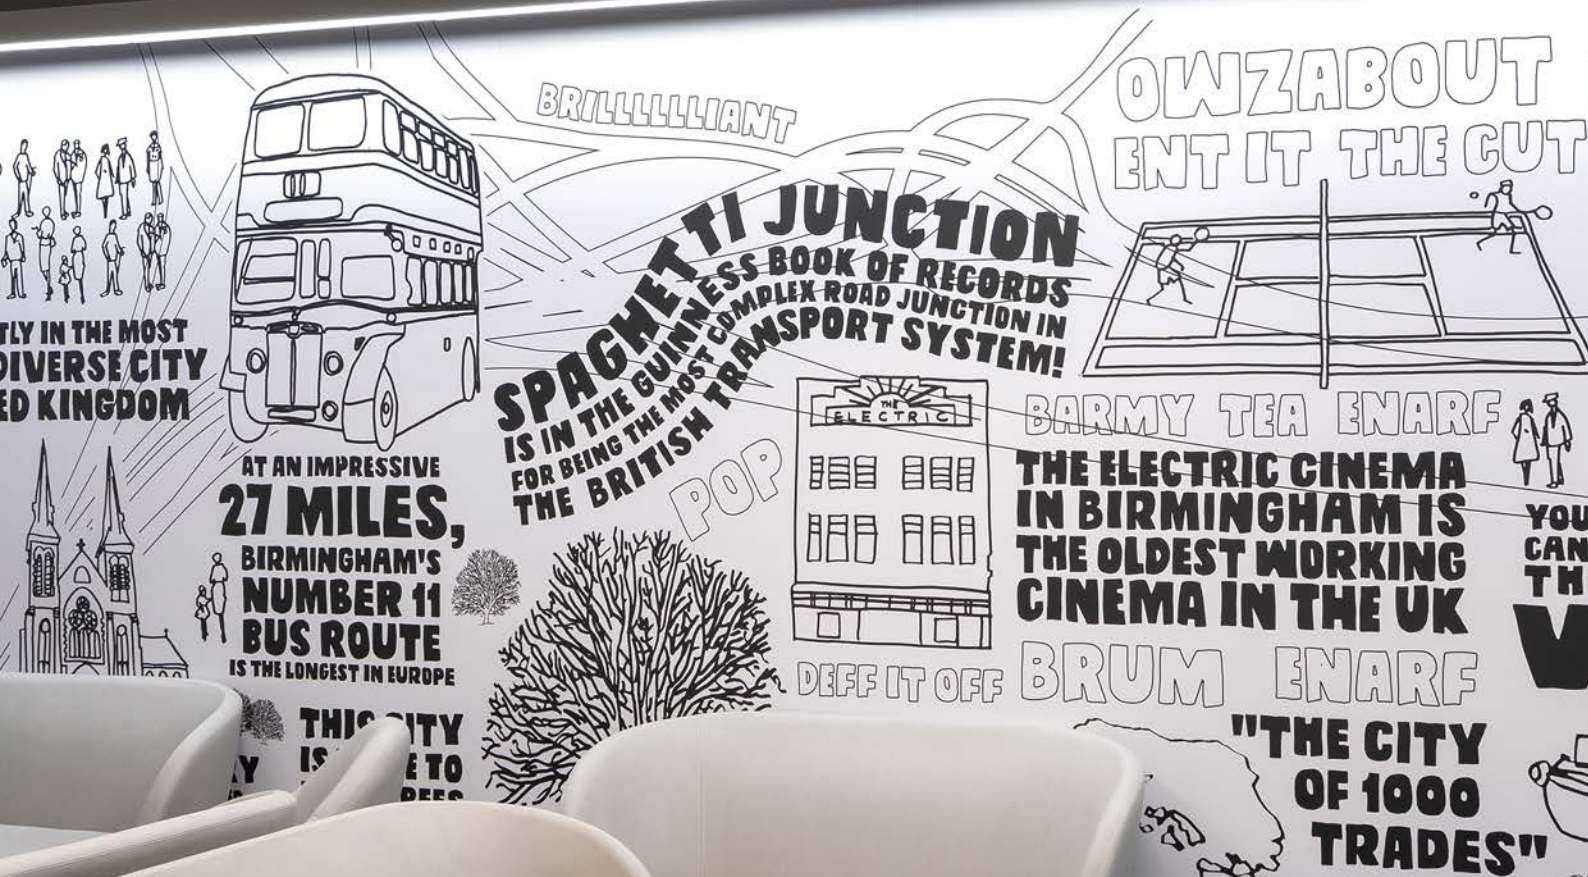 BRILLLLLLIANT
OWZABOUT
ENT IT THE CUT
IN THE MOST
DIVERSE CITY
KINGDOM
SPAGHETTI JUNCTION
IS IN THE GUINNESS BOOK OF RECORDS
FOR BEING THE MOST COMPLEX ROAD JUNCTION IN
THE BRITISH TRANSPORT SYSTEM!
AT AN IMPRESSIVE
27 MILES,
BIRMINGHAM'S
NUMBER 11
BUS ROUTE
IS THE LONGEST IN EUROPE
POP
THE
ELECTRIC
BARMY TEA ENARF
THE ELECTRIC CINEMA
IN BIRMINGHAM IS
THE OLDEST WORKING
CINEMA IN THE UK
DEFF IT OFF
BRUM ENARF
YOU
CAN
THIS CITY
IS TO
"THE CITY
OF 1000
TRADES"